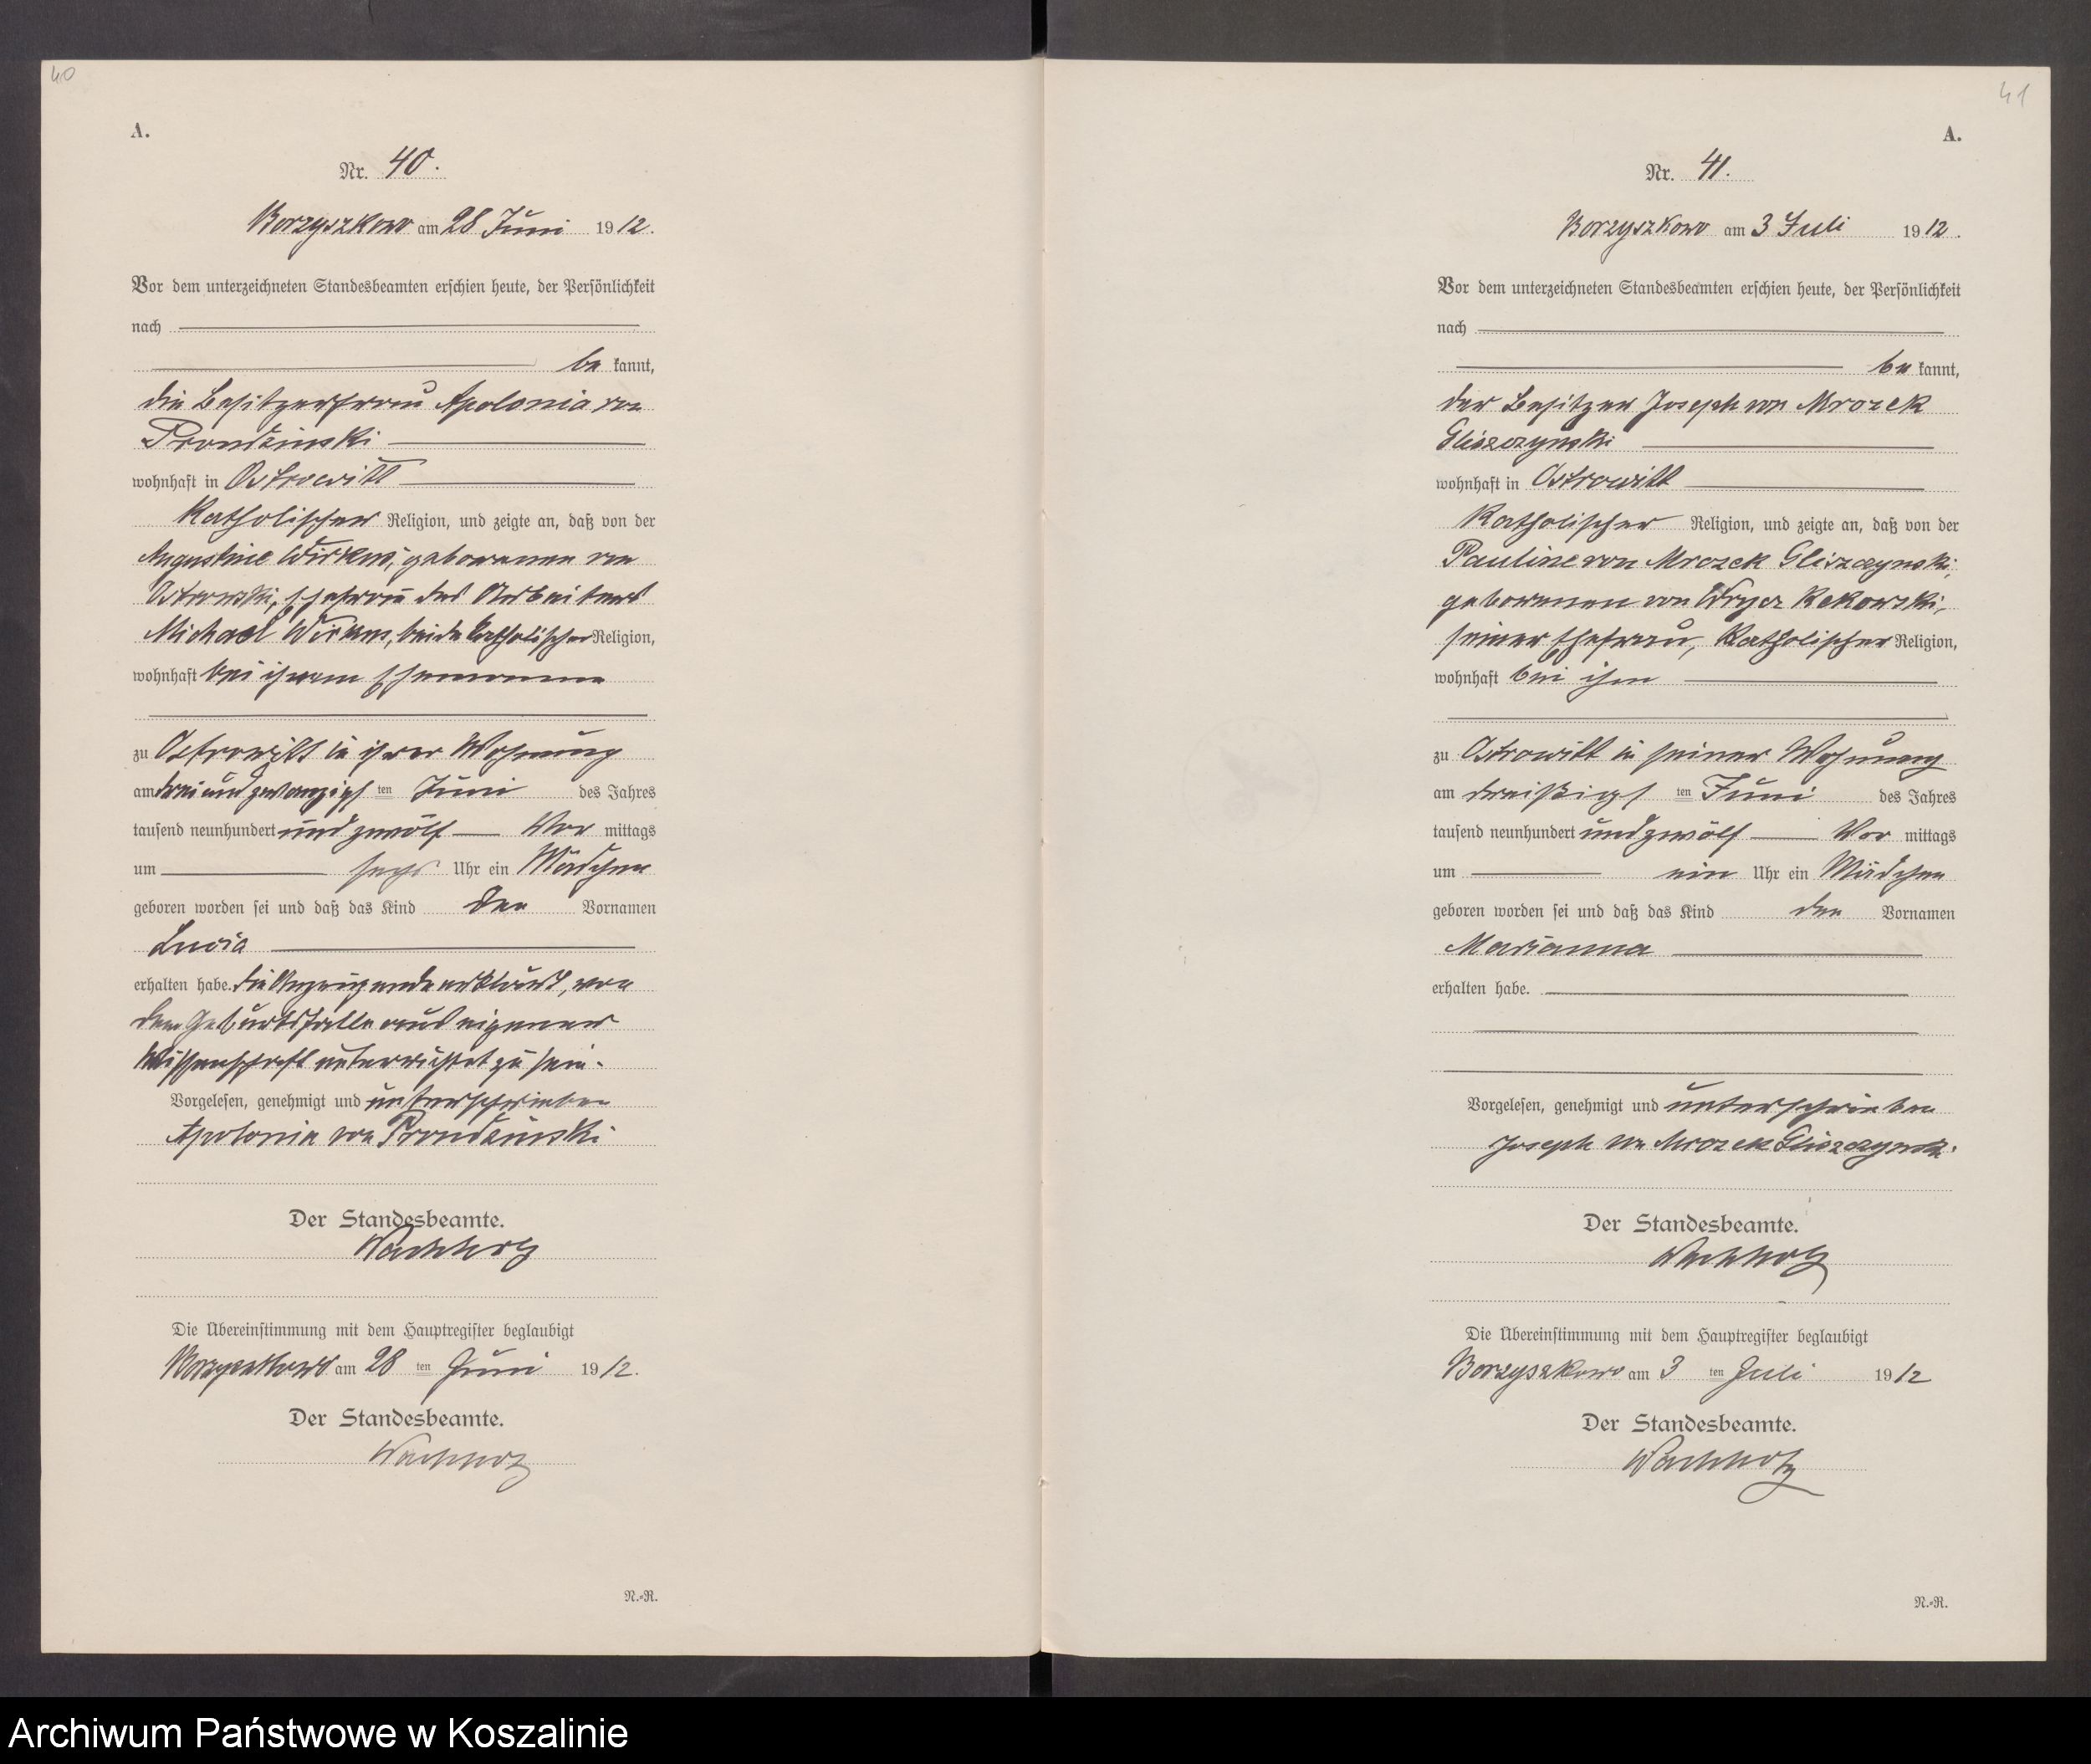 40
A.
Nr. 40.
Borzyszkowo am 28 Juni 1912.
Vor dem unterzeichneten Standesbeamten erschien heute, der Persönlichkeit
nach
be kannt,
die Besitzerfrau Apolonia von
Prondzinski
wohnhaft in Ostrowitt
katholischer Religion, und zeigte an, daß von der
Augustine Wirkus, geborenen von
Ostrowski, Ehefrau des Arbeiters
Michael Wirkus, beide katholischer Religion,
wohnhaft bei ihrem Ehemanne
zu Ostrowitt in ihrer Wohnung
am dreiundzwanzigsten Juni des Jahres
tausend neunhundert und zwölf Vor mittags
um sechs Uhr ein Mädchen
geboren worden sei und daß das Kind den Vornamen
Lucia
erhalten habe. Die Anzeigende erklärt, von
dem Geburtsfalle aus eigener
Wissenschaft unterrichtet zu sein.
Vorgelesen, genehmigt und unterschrieben
Apolonia von Prondzinski
Der Standesbeamte.
Wachholz
Die Übereinstimmung mit dem Hauptregister beglaubigt
Borzyszkowo am 28 ten Juni 1912.
Der Standesbeamte.
Wachholz
N.-R.
41
A.
Nr. 41.
Borzyszkowo am 3 Juli 1912.
Vor dem unterzeichneten Standesbeamten erschien heute, der Persönlichkeit
nach
be kannt,
der Besitzer Joseph von Mrozek
Gliszczynski
wohnhaft in Ostrowitt
katholischer Religion, und zeigte an, daß von der
Pauline von Mrozek Gliszczynski,
geborenen von Wrycz Rekowski,
seiner Ehefrau, katholischer Religion,
wohnhaft bei ihm
zu Ostrowitt in seiner Wohnung
am dreißigsten Juni des Jahres
tausend neunhundert und zwölf Vor mittags
um ein Uhr ein Mädchen
geboren worden sei und daß das Kind den Vornamen
Marianna
erhalten habe.
Vorgelesen, genehmigt und unterschrieben
Joseph von Mrozek Gliszczynski.
Der Standesbeamte.
Wachholz
Die Übereinstimmung mit dem Hauptregister beglaubigt
Borzyszkowo am 3 ten Juli 1912
Der Standesbeamte.
Wachholz
N.-R.
Archiwum Państwowe w Koszalinie